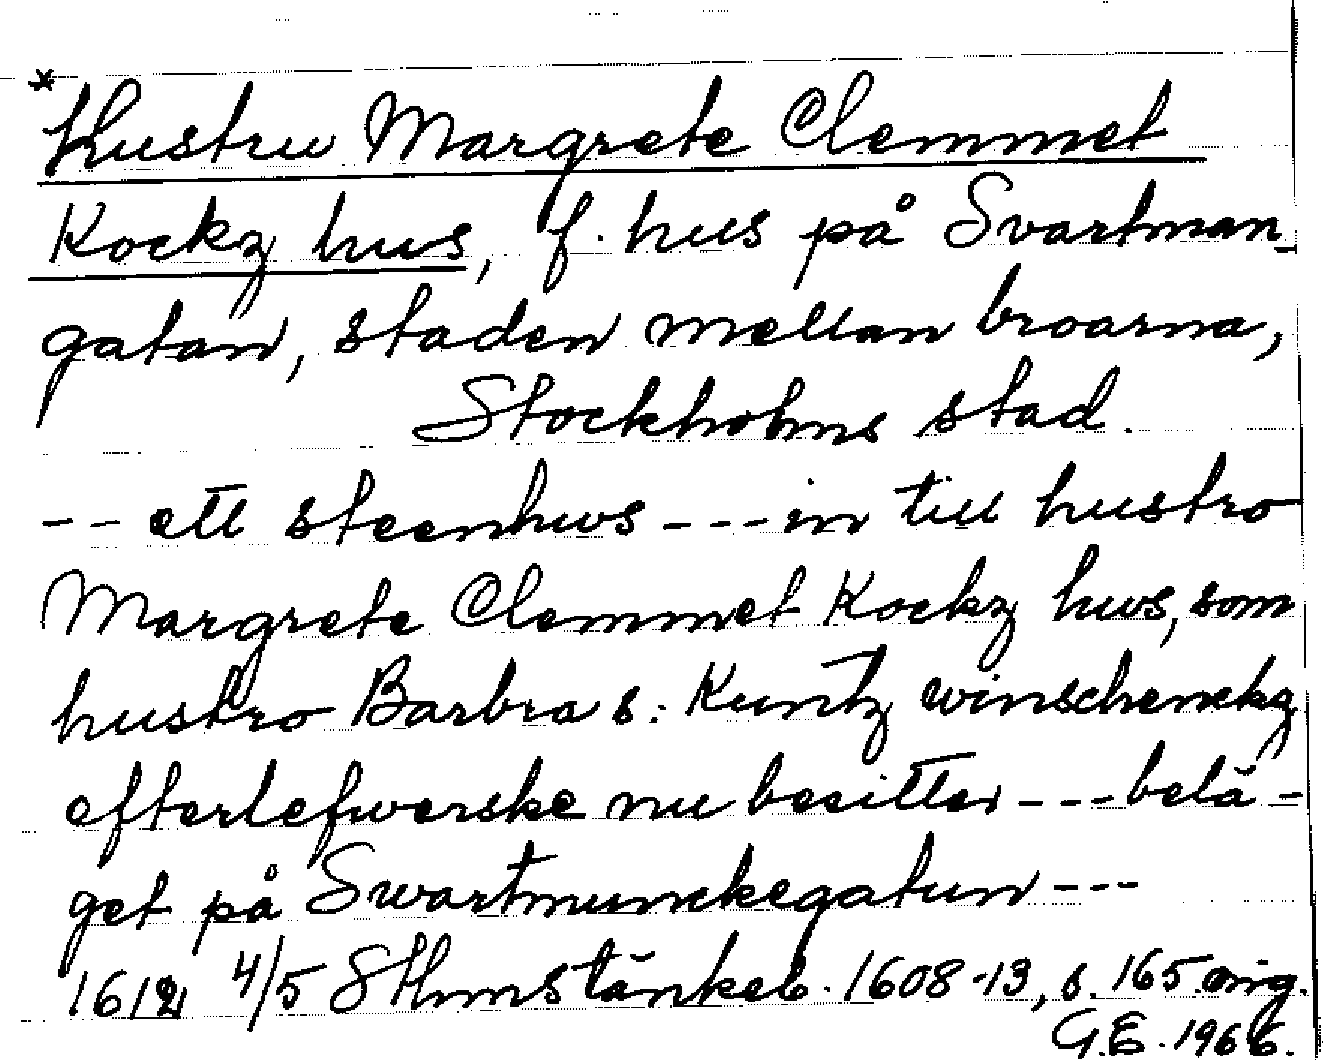 *Hustru Margrete Clemmet
Kockz hus, f. hus på Svartman-
gatan, staden mellan broarna,
Stockholms stad.
-- ett steenhws --- in till hustro
Margrete Clemmet Kockz hws, som
hustro Barbra s: Kuntz winschenckz
efterlefwerske nu besitter --- belä-
get på Swartmunckegatun ---
1612 4/5 SthmsTänkeb. 1608-13, s. 165 orig.
G.E. 1966.